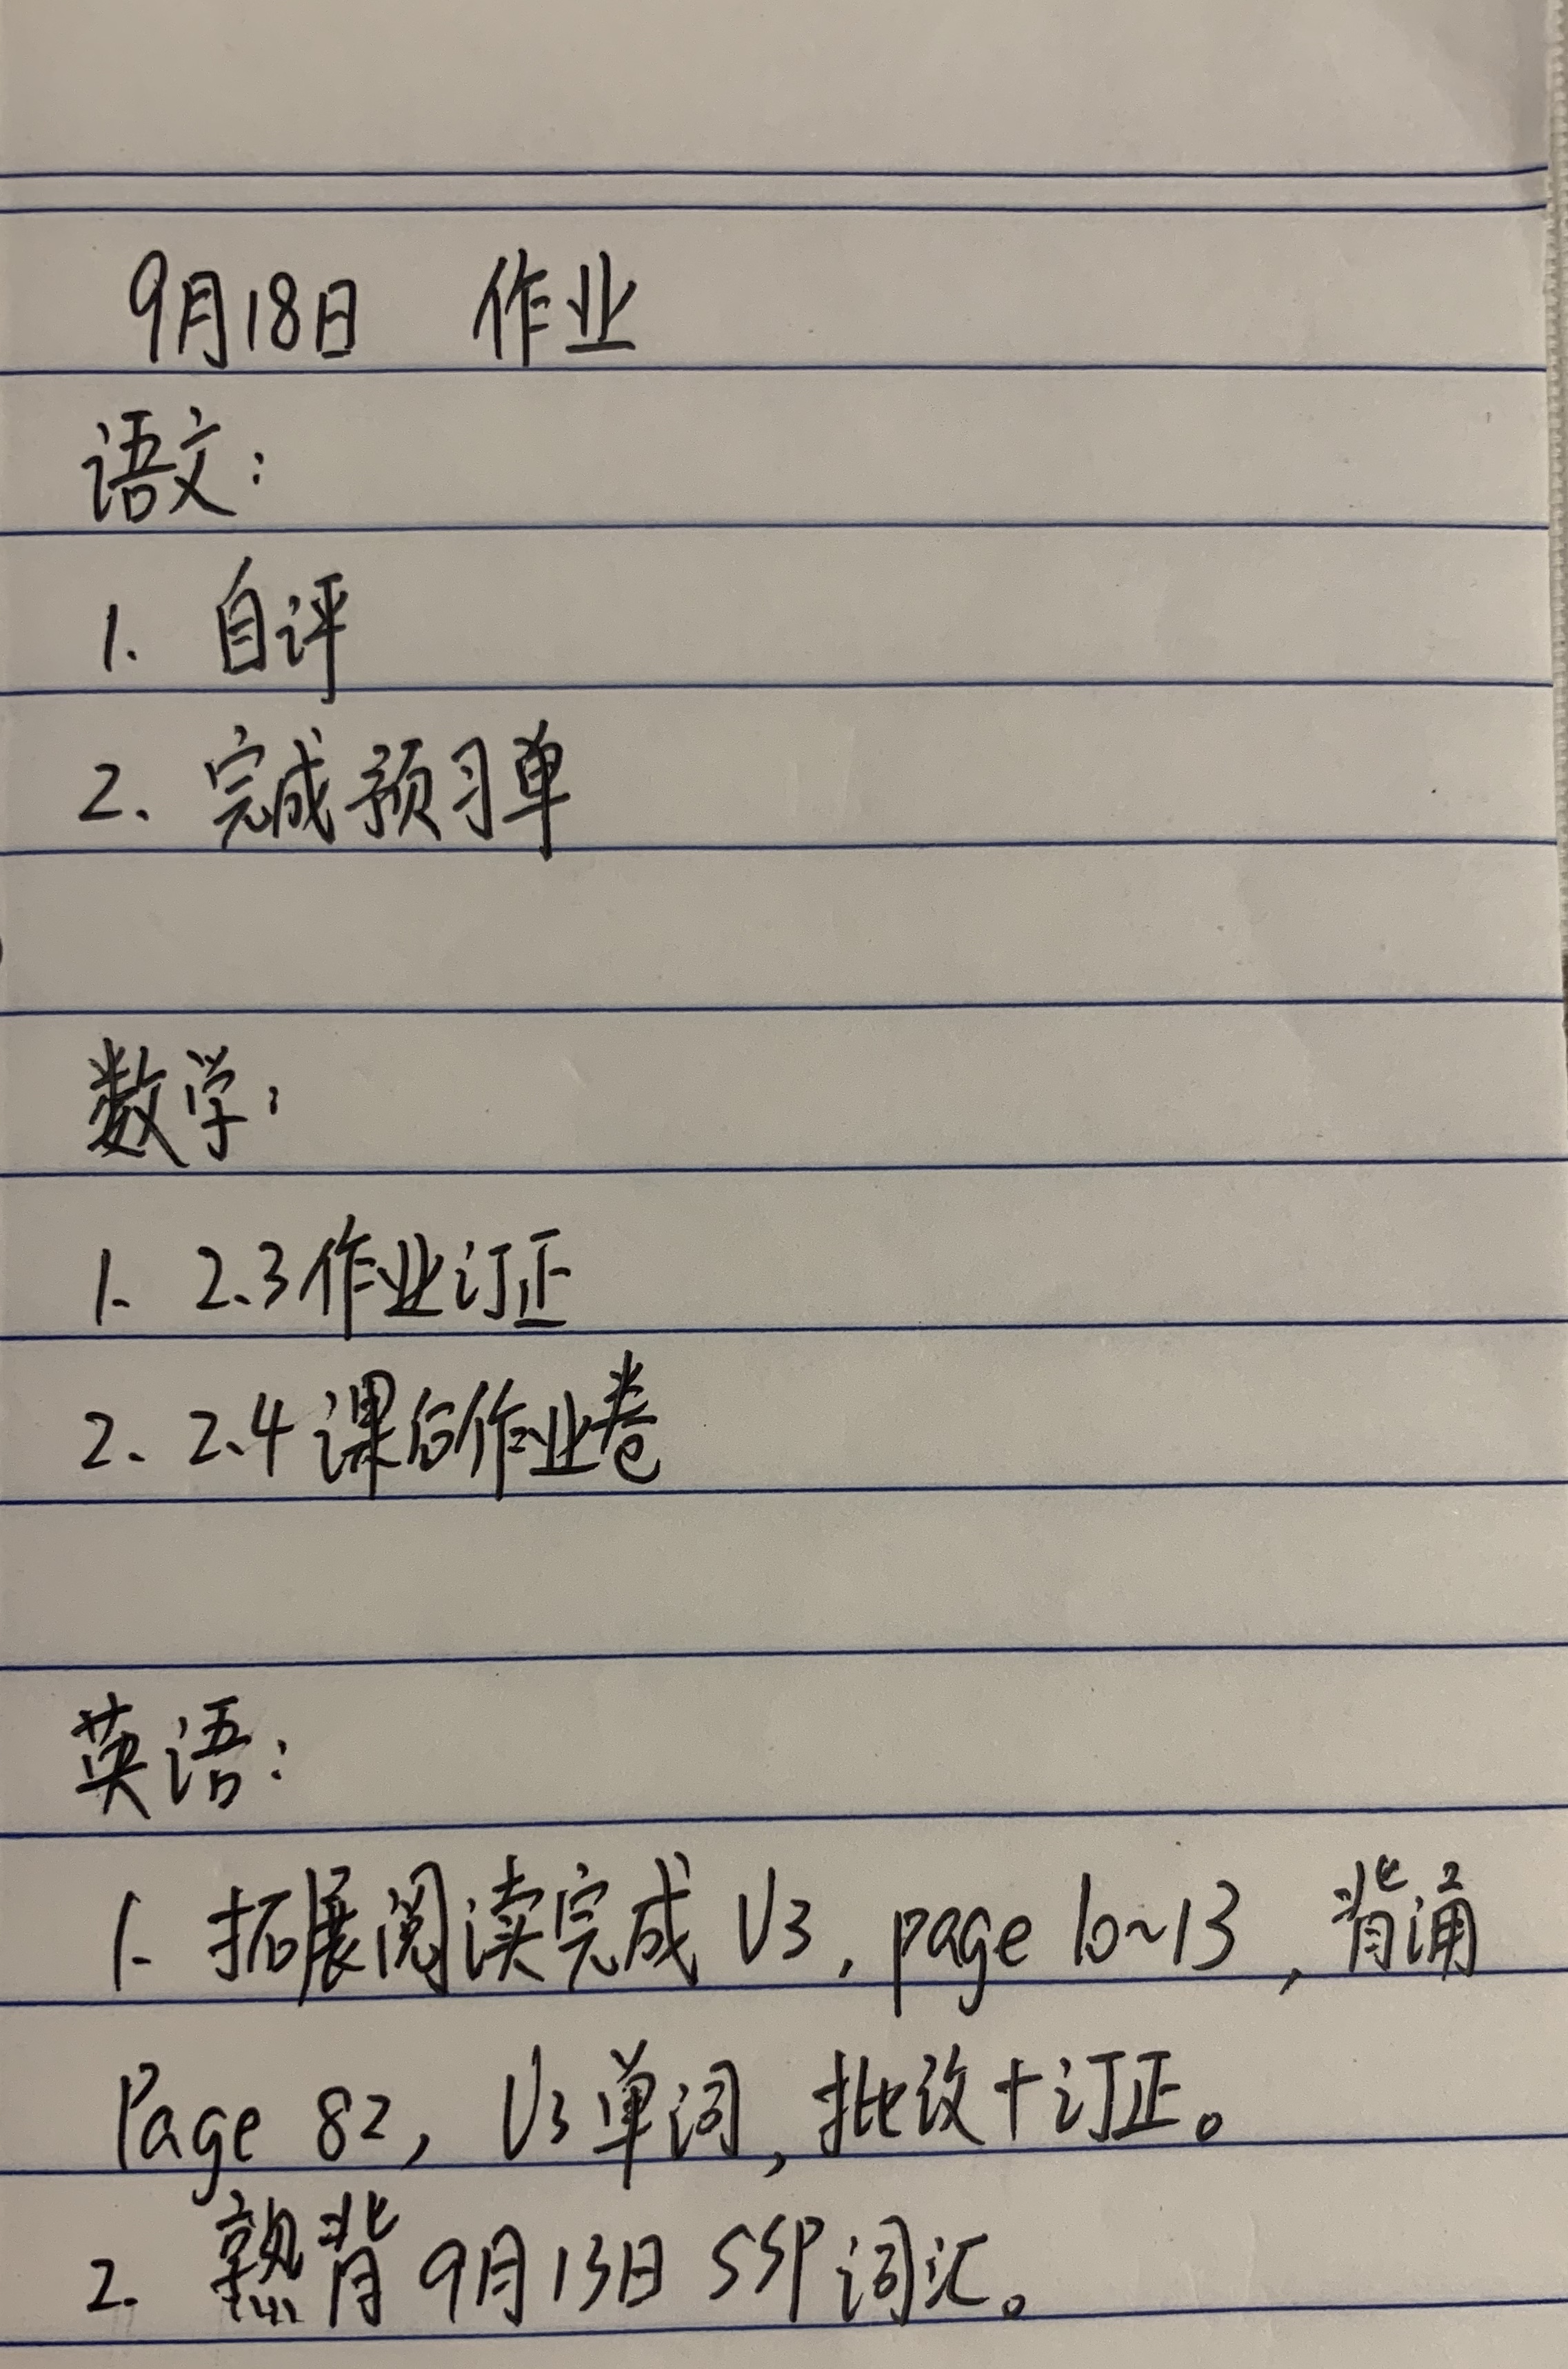 9月18日 作业
语文:
1. 自评
2. 完成预习单
数学:
1. 2.3作业订正
2. 2.4课后作业卷
英语:
1. 拓展阅读完成 U3, page 10~13, 背诵
Page 82, U3单词, 批改+订正。
2. 熟背9月13日 SSP词汇。